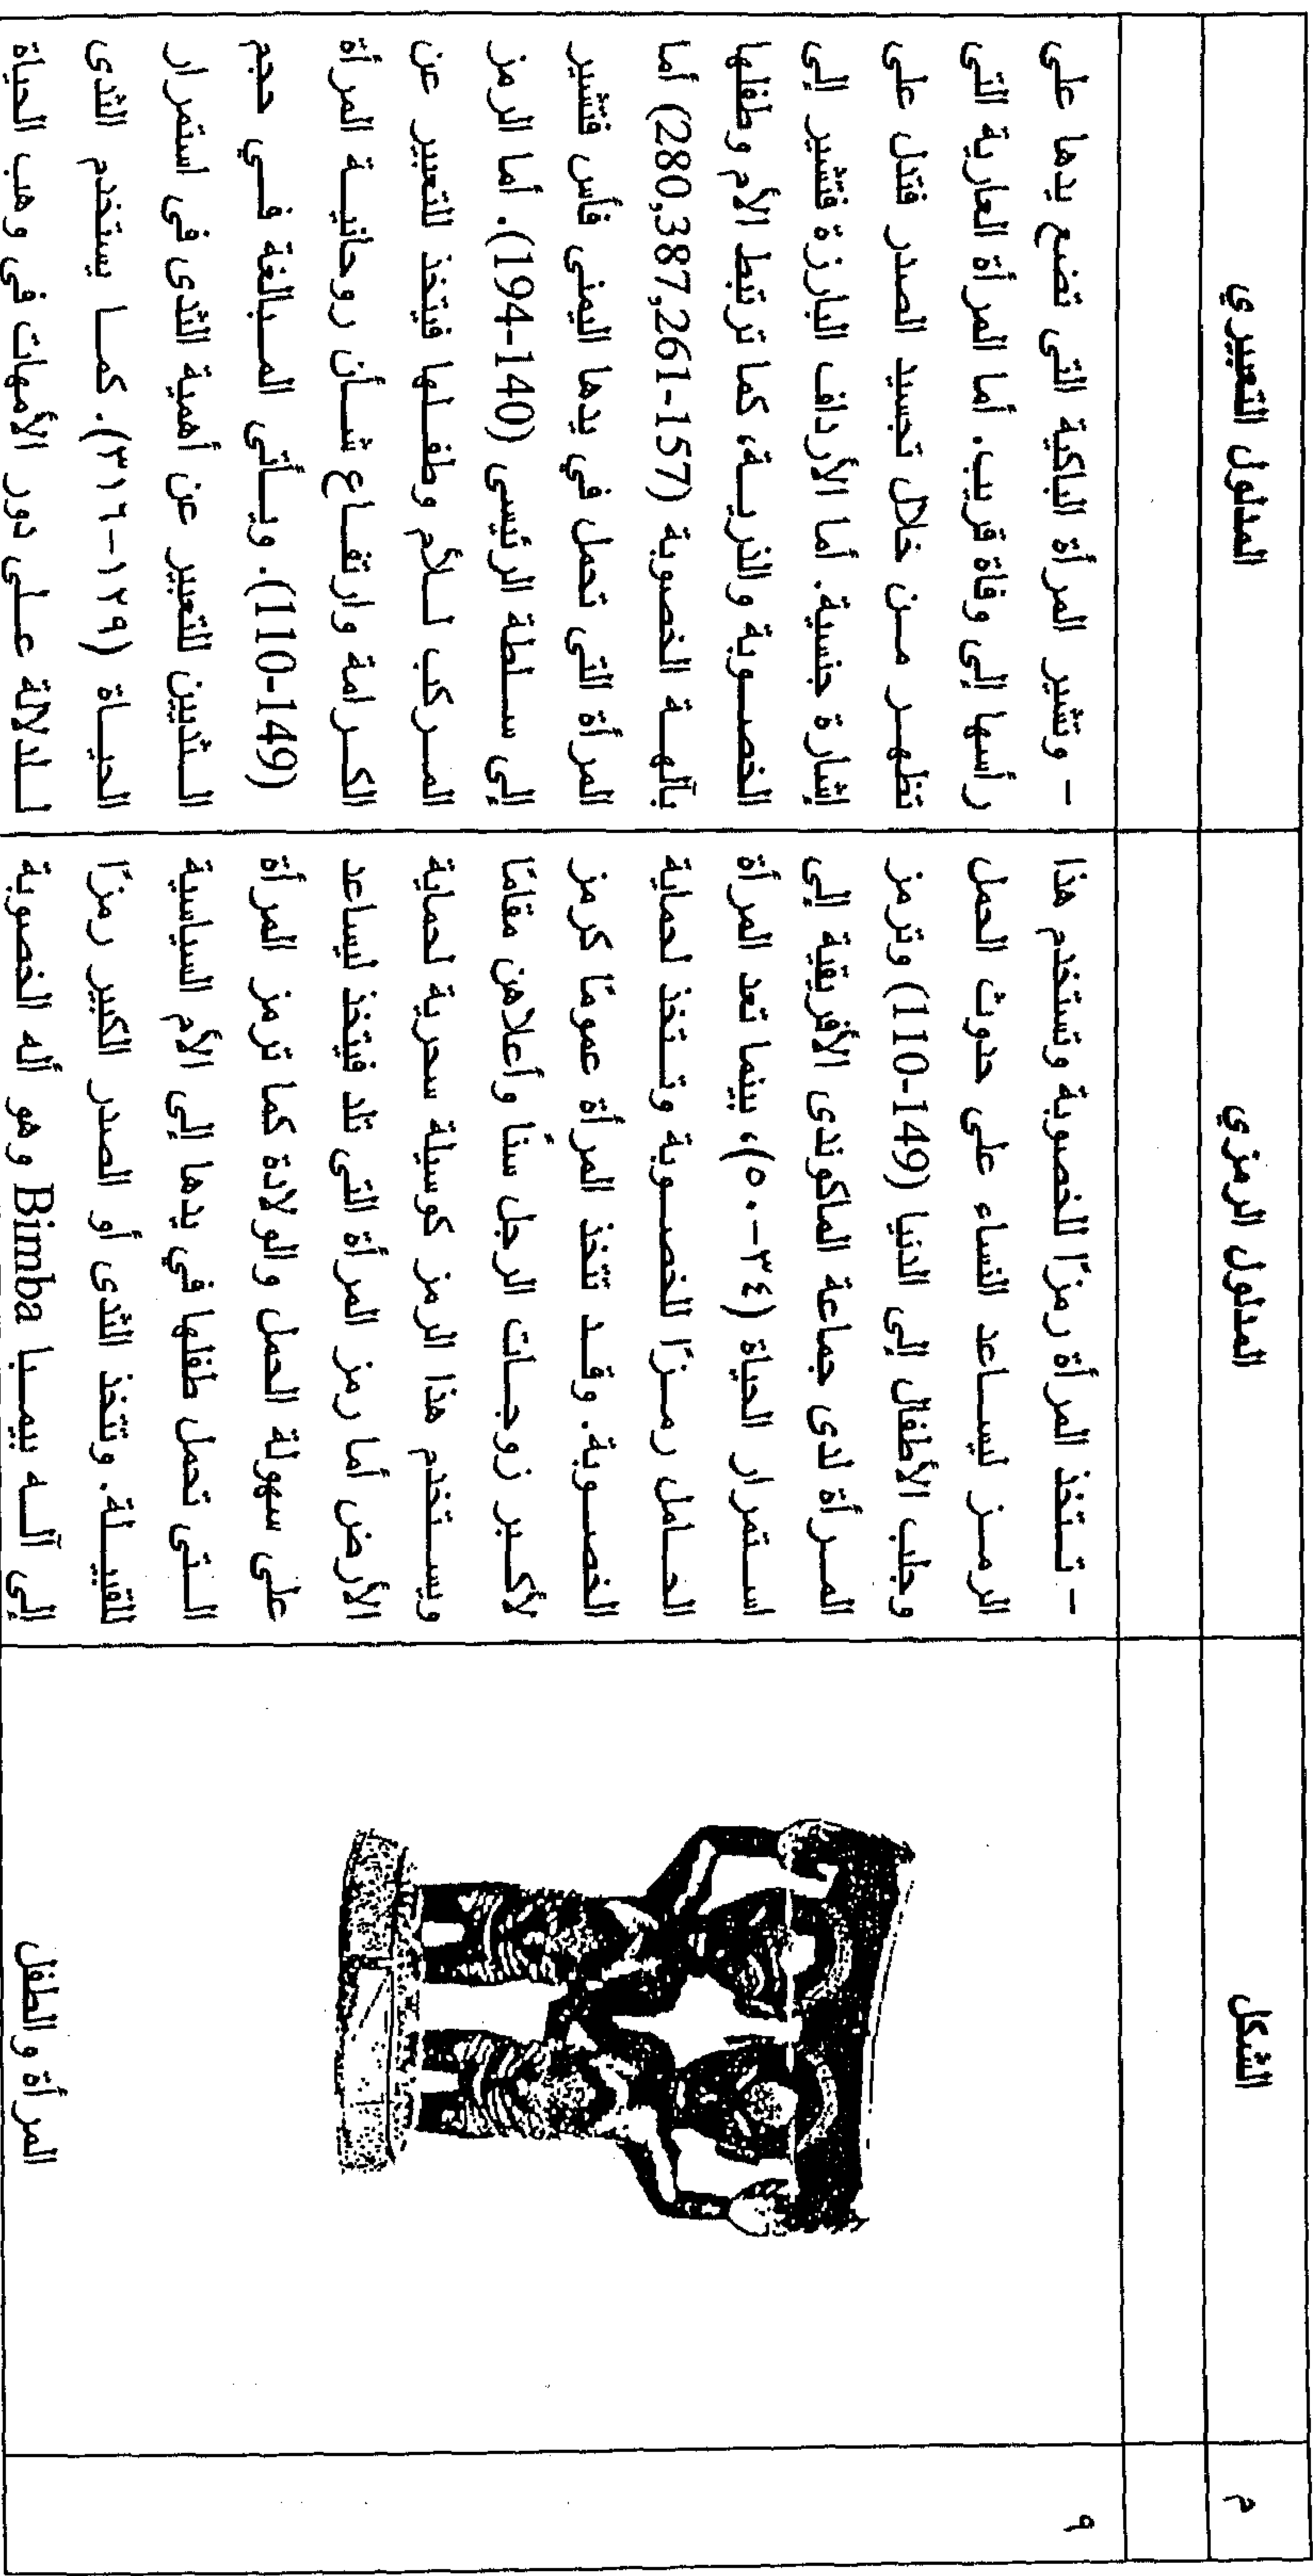 م
الشكل
المدلول الرمزي
المدلول التعبيري
٩
المرأة والطفل
- تتخذ المرأة رمزًا للخصوبة وتستخدم هذا
الرمز ليساعد النساء على حدوث الحمل
وجلب الأطفال إلى الدنيا (110-149) وترمز
المرأة لدى جماعة الماكوندى الأفريقية إلى
استمرار الحياة (٣٤-٥٠)، بينما تعد المرأة
الحامل رمزًا للخصوبة وتتخذ لحماية
الخصوبة. وقد تتخذ المرأة عمومًا كرمز
لأكبر زوجات الرجل سنًا وأعلاهن مقامًا
ويستخدم هذا الرمز كوسيلة سحرية لحماية
الأرض أما رمز المرأة التى تلد فيتخذ ليساعد
على سهولة الحمل والولادة كما ترمز المرأة
التى تحمل طفلها في يدها إلى الأم السياسية
للقبيلة. وتتخذ الثدى أو الصدر الكبير رمزًا
إلى آله بيمبا Bimba وهو أله الخصوبة
- وتشير المرأة الباكية التى تضع يدها على
رأسها إلى وفاة قريب. أما المرأة العارية التى
تظهر من خلال تجسيد الصدر فتدل على
إشارة جنسية. أما الأرداف البارزة فتشير إلى
الخصوبة والذرية، كما ترتبط الأم وطفلها
بآلهة الخصوبة (157-280,387,261) أما
المرأة التى تحمل في يدها اليمنى فأس فتشير
إلى سلطة الرئيسى (140-194). أما الرمز
المركب للأم وطفلها فيتخذ للتعبير عن
الكرامة وارتفاع شأن روحانية المرأة
(110-149). ويأتى المبالغة في حجم
الثديين للتعبير عن أهمية الثدى فى استمرار
الحياة (١٢٩-٣١٦). كما يستخدم الثدى
للدلالة على دور الأمهات فى وهب الحياة